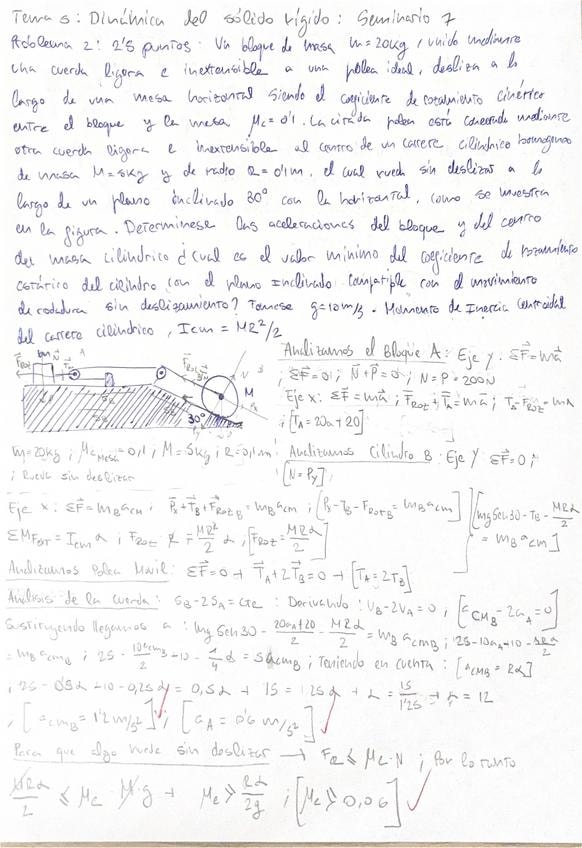 Tema 5: Dinámica del sólido rígido: Seminario 7
Problema 2: 2'5 puntos. Un bloque de masa m=20kg, unido mediante
una cuerda ligera e inextensible a una polea ideal, desliza a lo
largo de una mesa horizontal siendo el coeficiente de rozamiento cinético
entre el bloque y la mesa μc=0'1. La citada polea está conectada mediante
otra cuerda ligera e inextensible al centro de un carrete cilíndrico homogéneo
de masa M=5kg y de radio R=0'1m, el cual rueda sin deslizar a lo
largo de un plano inclinado 30° con la horizontal, como se muestra
en la figura. Determínese las aceleraciones del bloque y del centro
de masa cilíndrico ¿Cual es el valor mínimo del coeficiente de rozamiento
estático del cilindro con el plano inclinado compatible con el movimiento
de rodadura sin deslizamiento? Tomese g=10m/s. Momento de Inercia centroidal
del carrete cilíndrico, Icm = MR²/2
Analizamos el bloque A: Eje y: ΣF=ma
; ΣF=0; N+P=0; N=P=200N
Eje x: ΣF=ma; Froz+TA=ma; TA-Froz=mA
; [TA=20a+20]
M
30°
m=20kg; μc Mesa=0,1; M=5kg; R=0,1m;
; Rueda sin deslizar
Analizamos Cilindro B: Eje y ΣF=0;
[N=Py]
Eje x: ΣF=mB acm; Px+TB+FrozB=mB acm; [Px-TB-FrozB=mB acm]
[mg Sen30-TB-MRα/2 = mB acm]
ΣMFext=Icm α; Froz R = MR²/2 α; [Froz=MRα/2]
Analizamos Polea Movil: ΣF=0 → TA+2TB=0 → [TA=2TB]
Análisis de la cuerda: SB-2SA=cte: Derivando: VB-2VA=0; [aCMB-2aA=0]
Sustituyendo llegamos a: mg Sen30-20aA+20/2-MRα/2=mB acmB; 25-10aA-10-5Rα/2
=mB acmB; 25-10acmB/2-10-1/4 α=5acmB; Teniendo en cuenta: [aCMB=Rα]
; 25-0'5α-10-0,25α=0,5α → 15=1'25α → α=15/1'25 → α=12
; [acmB=1'2 m/s²]; [aA=0'6 m/s²]
Para que algo ruede sin deslizar → FR≤μe·N; Por lo tanto
MRα/2 ≤ μe·M·g → μe ≥ Rα/2g; [μe≥0,06]